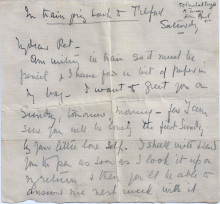 In train going back to
Saturday
My dear Pet —
Am writing in train so it must be
pencil & I have got a bit of paper in
my bag — I want to greet you on
Sunday, tomorrow, morning — for I am
sure you will be lonely the first Sunday
by your little lone self. I shall
you the pen as soon as I look it up on
my return & then you'll be able to
answer me next week with it